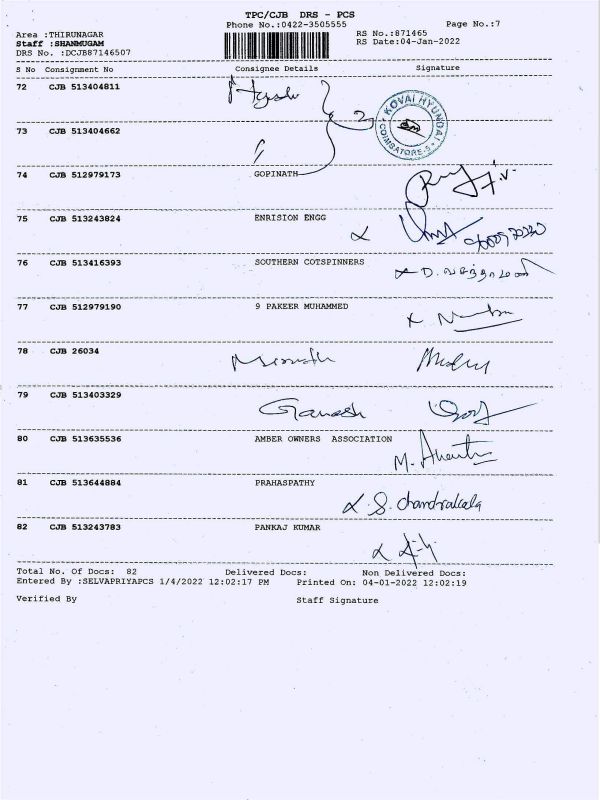 TPC/CJB DRS - PCS
Phone No.:0422-3505555
Page No.:7
Area :THIRUNAGAR
RS No.:871465
Staff :SHANMUGAM
RS Date:04-Jan-2022
DRS No. :DCJB87146507
S No Consignment No Consignee Details Signature
72 CJB 513404811
KOVAI HYUNDAI
COIMBATORE-5
2
73 CJB 513404662
74 CJB 512979173 GOPINATH
75 CJB 513243824 ENRISION ENGG
76 CJB 513416393 SOUTHERN COTSPINNERS
77 CJB 512979190 9 PAKEER MUHAMMED
78 CJB 26034
79 CJB 513403329 Ganesh
80 CJB 513635536 AMBER OWNERS ASSOCIATION
81 CJB 513644884 PRAHASPATHY
S. Chandrakala
82 CJB 513243783 PANKAJ KUMAR
Total No. Of Docs: 82 Delivered Docs: Non Delivered Docs:
Entered By :SELVAPRIYAPCS 1/4/2022 12:02:17 PM Printed On: 04-01-2022 12:02:19
Verified By Staff Signature